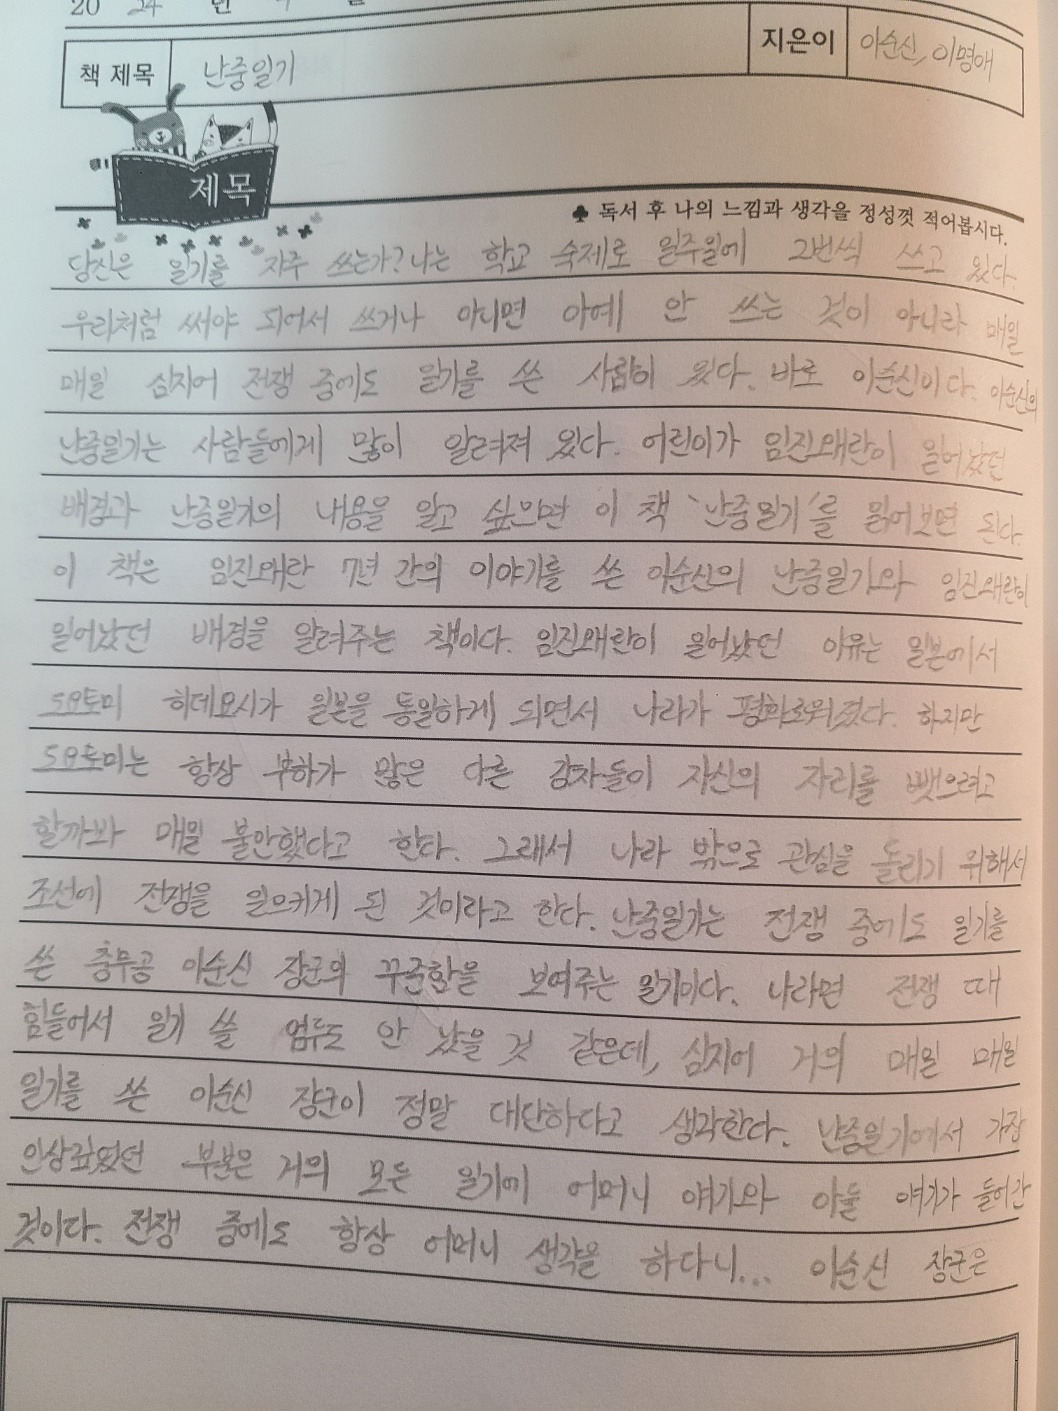 20 24 년
책 제목 난중일기 지은이 이순신, 이명애
제목
♣ 독서 후 나의 느낌과 생각을 정성껏 적어봅시다.
당신은 일기를 자주 쓰는가? 나는 학교 숙제로 일주일에 2번씩 쓰고 있다.
우리처럼 써야 되어서 쓰거나 아니면 아예 안 쓰는 것이 아니라 매일
매일 심지어 전쟁 중에도 일기를 쓴 사람이 있다. 바로 이순신이다. 이순신의
난중일기는 사람들에게 많이 알려져 있다. 어린이가 임진왜란이 일어났던
배경과 난중일기의 내용을 알고 싶으면 이 책 '난중일기'를 읽어보면 된다.
이 책은 임진왜란 7년 간의 이야기를 쓴 이순신의 난중일기와 임진왜란이
일어났던 배경을 알려주는 책이다. 임진왜란이 일어났던 이유는 일본에서
도요토미 히데요시가 일본을 통일하게 되면서 나라가 평화로워졌다. 하지만
도요토미는 항상 부하가 많은 다른 강자들이 자신의 자리를 뺏으려고
할까봐 매일 불안했다고 한다. 그래서 나라 밖으로 관심을 돌리기 위해서
조선에 전쟁을 일으키게 된 것이라고 한다. 난중일기는 전쟁 중에도 일기를
쓴 충무공 이순신 장군의 꾸준함을 보여주는 일기이다. 나라면 전쟁 때
힘들어서 일기 쓸 엄두도 안 났을 것 같은데, 심지어 거의 매일 매일
일기를 쓴 이순신 장군이 정말 대단하다고 생각한다. 난중일기에서 가장
인상깊었던 부분은 거의 모든 일기에 어머니 얘기와 아들 얘기가 들어간
것이다. 전쟁 중에도 항상 어머니 생각을 하다니... 이순신 장군은